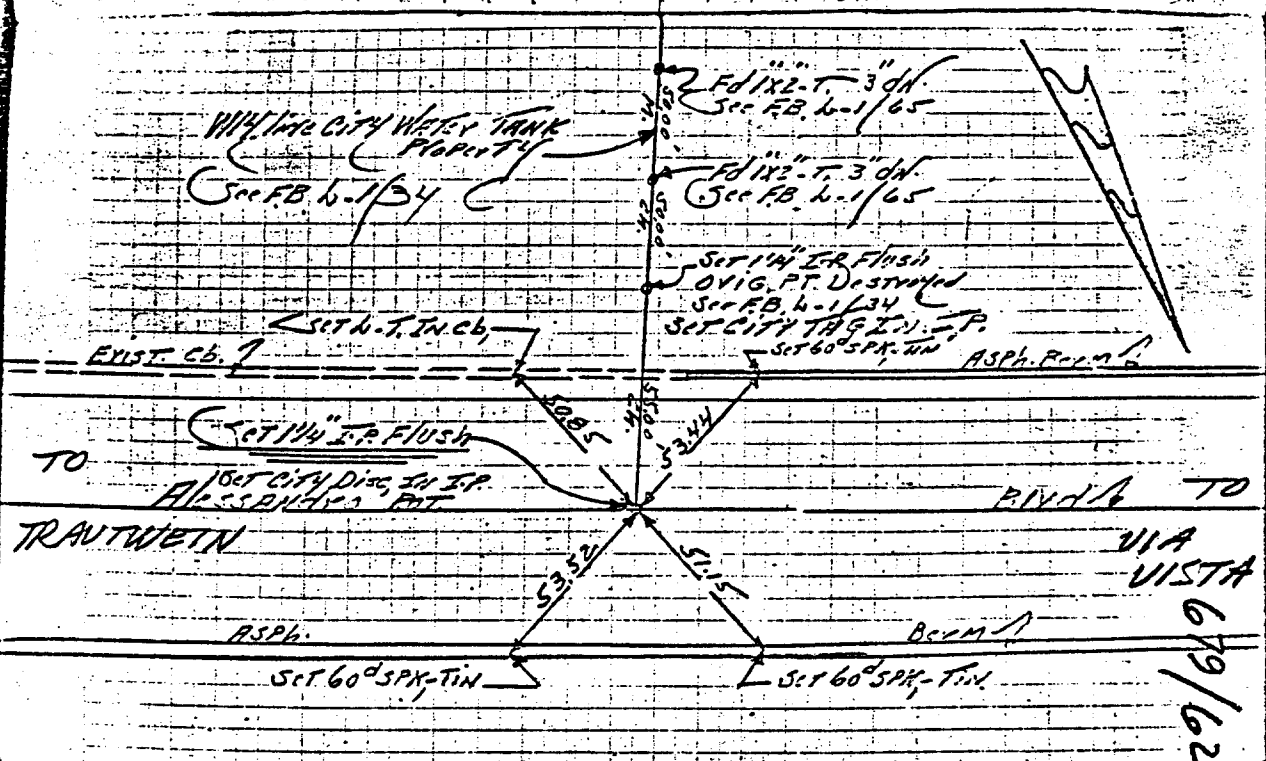 Fd 1"x2"-T. 3" dn.
See F.B. L-1/65
W'ly line City Water Tank
Property
See F.B. L-1/34
50.00' M.
Fd 1"x2"-T. 3" dn.
See F.B. L-1/65
50.00' M.
Set 1¼" I.P. Flush
Orig. Pt. Destroyed
See F.B. L-1/34
Set City Tag In I.P.
Set L.-T. In Cb.
Set 60d SPK-Tin
Exist. Cb.
Asph. Berm
55.00' M.
50.85
53.44
Set 1¼" I.P. Flush
Set City Disc. In I.P.
TO
Alessandro
Blvd
TO
TRAUTWEIN
VIA
VISTA
53.52
51.15
Asph.
Berm
Set 60d SPK-Tin
Set 60d SPK-Tin.
679/62